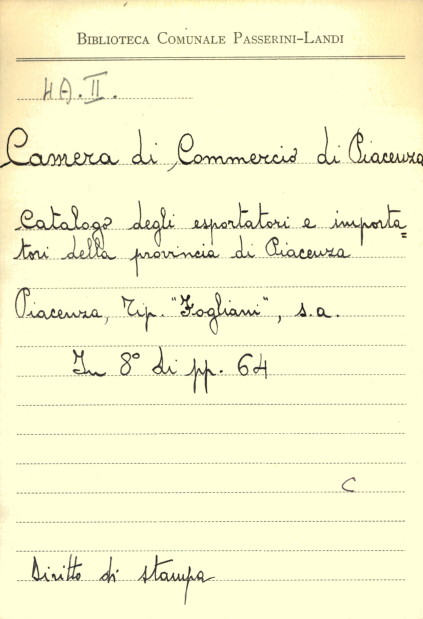 BIBLIOTECA COMUNALE PASSERINI-LANDI
4A.II.
Camera di Commercio di Piacenza
Catalogo degli esportatori e importa=
tori della provincia di Piacenza
Piacenza, Tip. "Fogliani", s.a.
In 8° di pp. 64
C
Diritto di stampa